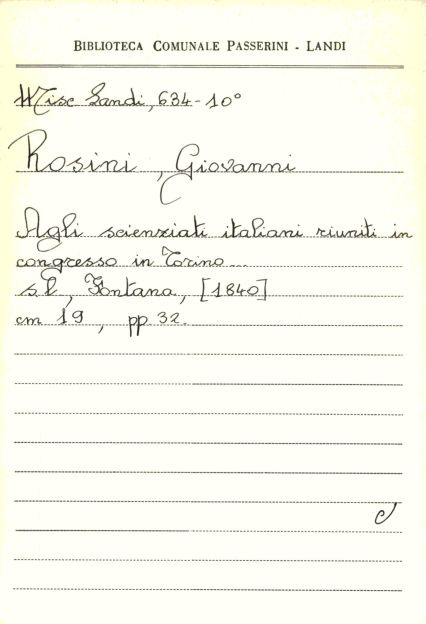 BIBLIOTECA COMUNALE PASSERINI - LANDI
Misc Landi, 634-10°
Rosini, Giovanni
Agli scienziati italiani riuniti in
congresso in Torino...
s.l., Fontana, [1840]
cm 19, pp 32.